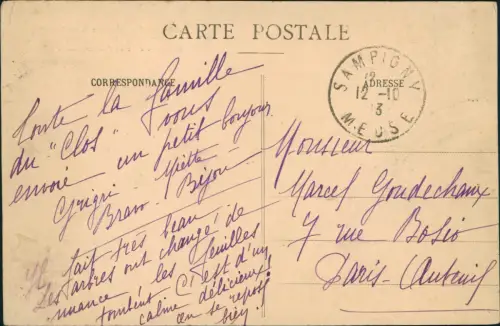 CARTE POSTALE
CORRESPONDANCE
ADRESSE
SAMPIGNY
12
12 -10
13
MEUSE
Toute la famille
du "Clos" vous
envoie un petit bonjour
Grigri Miette
Bravo. Bijou
Il fait très beau
Les arbres ont changé de
nuance, les feuilles
tombent. C'est d'un
calme délicieux,
on se repose
bien!
Monsieur
Marcel Goudechaux
7 rue Bosio
Paris-Auteuil